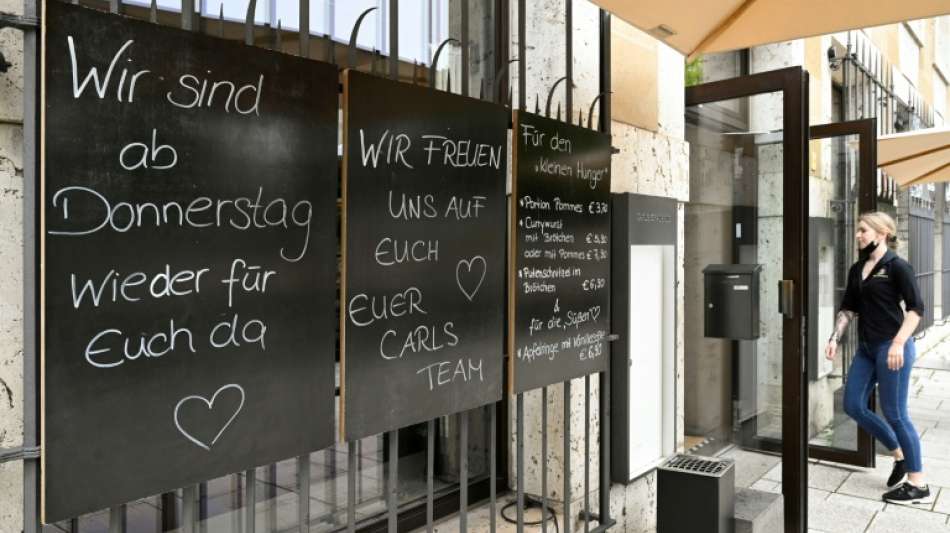 Wir sind
ab
Donnerstag
Wieder für
Euch da
WIR FREUEN
UNS AUF
EUCH
EUER
CARLS
TEAM
Für den
„kleinen Hunger"
* Portion Pommes €3,90
* Currywurst
mit Brötchen €5,90
oder mit Pommes €7,90
* Putenschnitzel im
Brötchen €6,90
&
für die „Süßen"
* Apfelringe mit Vanillesoße
€6,90